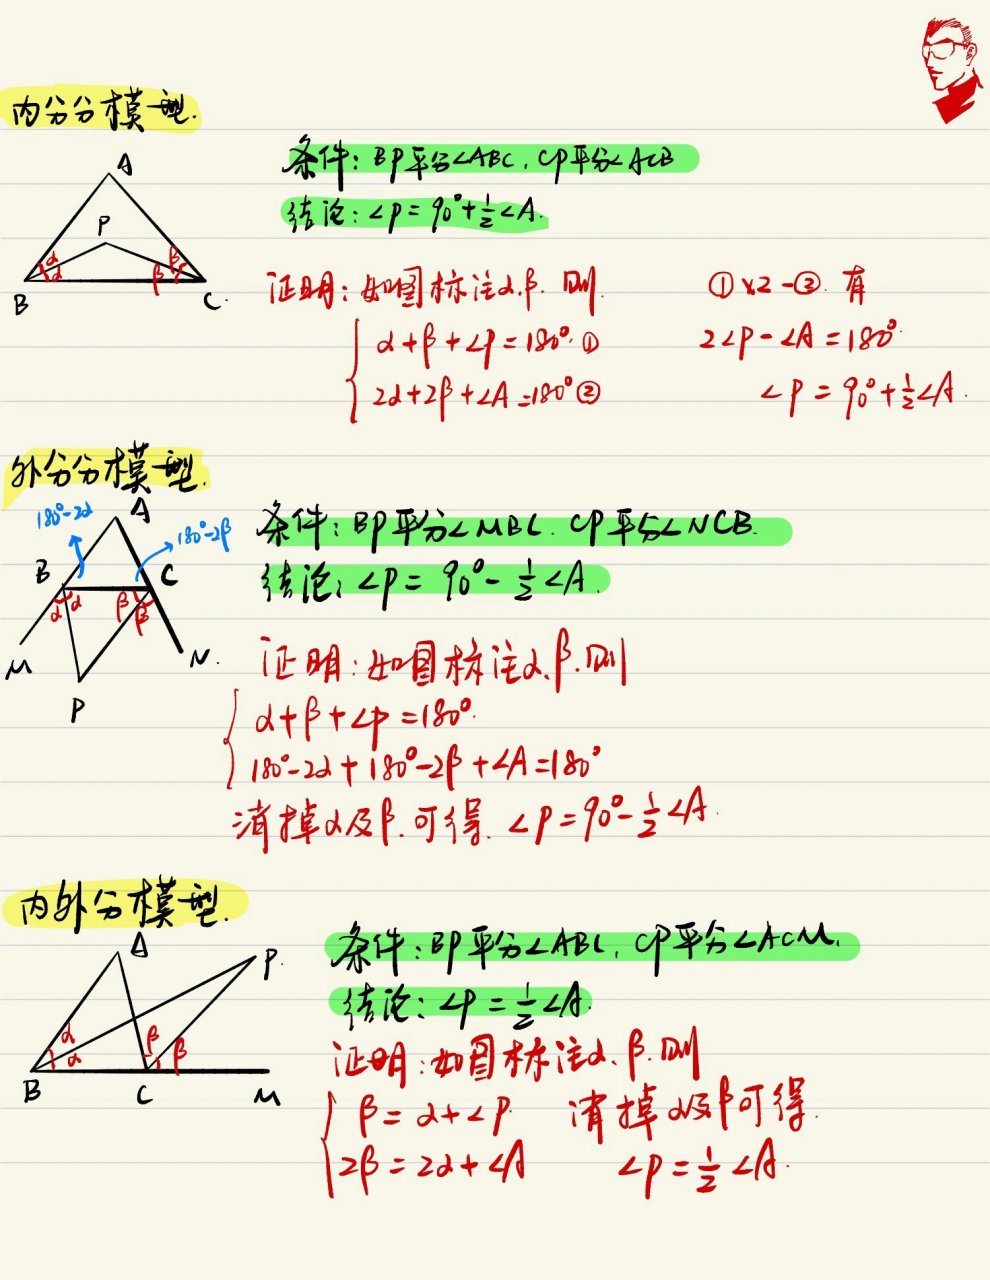 内分分模型.
A
P
α α β β
B C.
条件: BP平分∠ABC, CP平分∠ACB
结论: ∠P = 90°+½∠A.
证明: 如图标注α.β. 则
α+β+∠P=180° ①
2α+2β+∠A=180° ②
①×2-②. 有
2∠P-∠A=180°
∠P = 90°+½∠A.
外分分模型.
180°-2α A 180°-2β
B C
α α β β
M N.
P
条件: BP平分∠MBC. CP平分∠NCB.
结论: ∠P = 90°-½∠A.
证明: 如图标注α.β.则
α+β+∠P=180°.
180°-2α+180°-2β+∠A=180°
消掉α及β.可得. ∠P=90°-½∠A.
内外分模型.
A P.
α α β β
B C M
条件: BP平分∠ABC, CP平分∠ACM.
结论: ∠P=½∠A.
证明: 如图标注α.β.则
β=α+∠P.
2β=2α+∠A
消掉α及β可得.
∠P=½∠A.